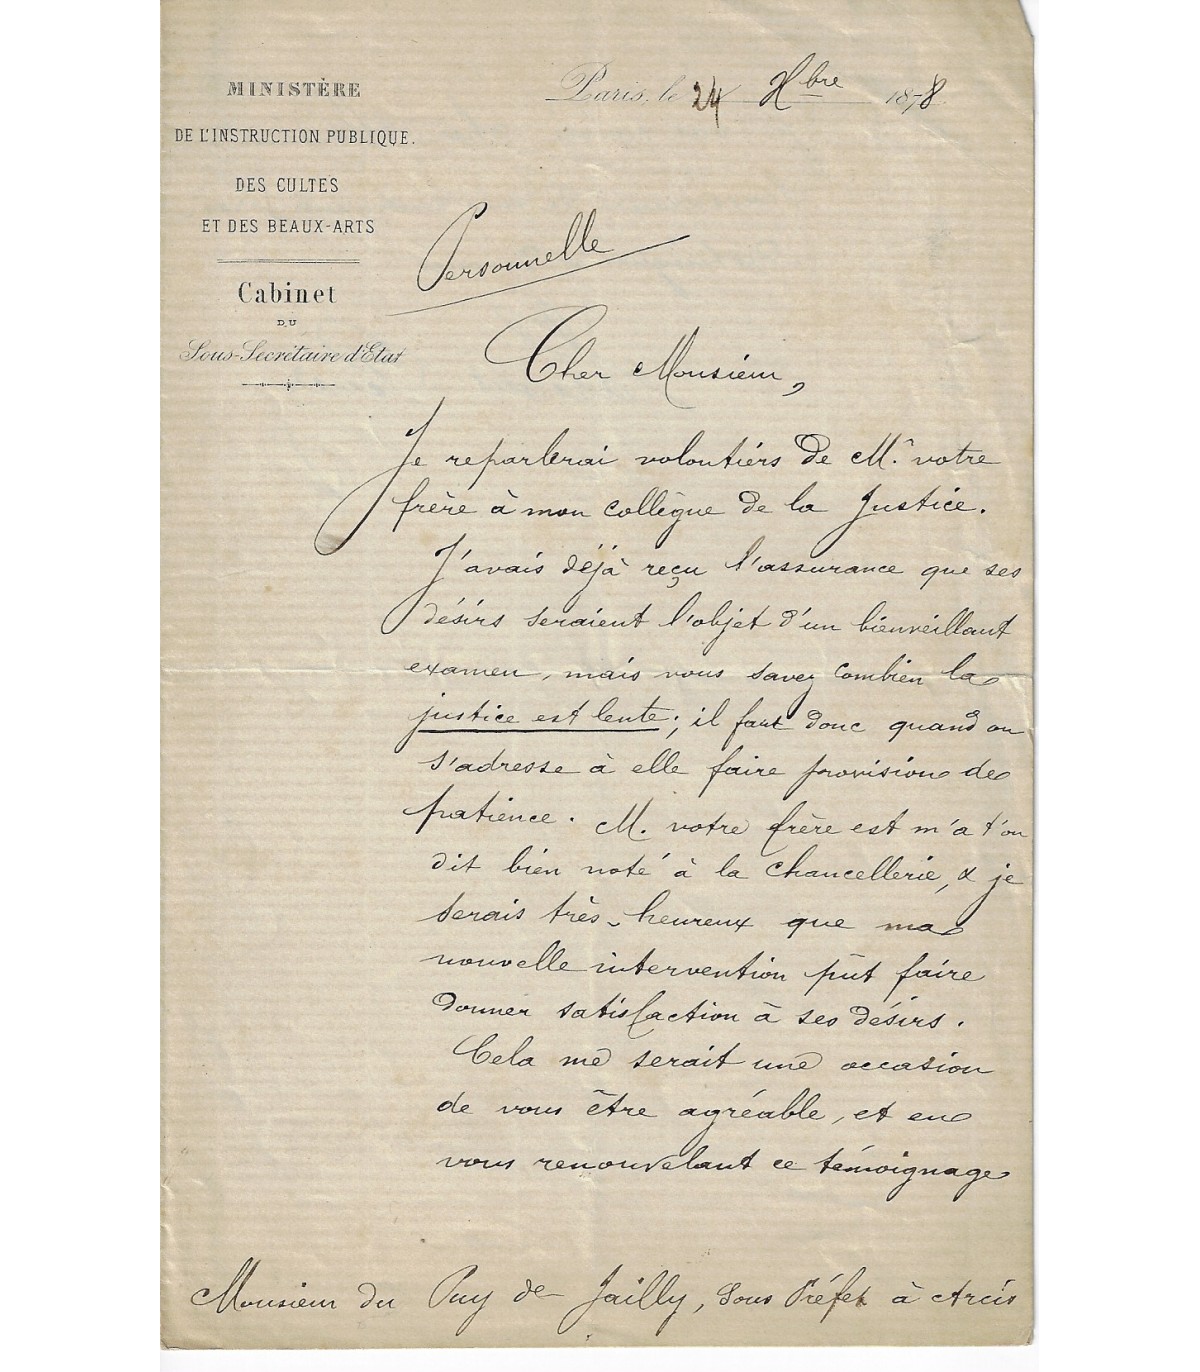 MINISTÈRE
DE L'INSTRUCTION PUBLIQUE.
DES CULTES
ET DES BEAUX-ARTS
Cabinet
DU
Sous-Secrétaire d'Etat
Paris, le 24 Xbre 1878
Personnelle
Cher Monsieur,
Je reparlerai volontiers de Mr votre
frère à mon collègue de la Justice.
J'avais déjà reçu l'assurance que ses
désirs seraient l'objet d'un bienveillant
examen, mais vous savez combien la
justice est lente; il faut donc quand on
s'adresse à elle faire provision de
patience. M. votre frère est m'a t'on
dit bien noté à la Chancellerie, & je
serais très-heureux que ma
nouvelle intervention pût faire
donner satisfaction à ses désirs.
Cela me serait une occasion
de vous être agréable, et en
vous renouvelant ce témoignage
Monsieur du Puy de Jailly, Sous Préfet à Arcis